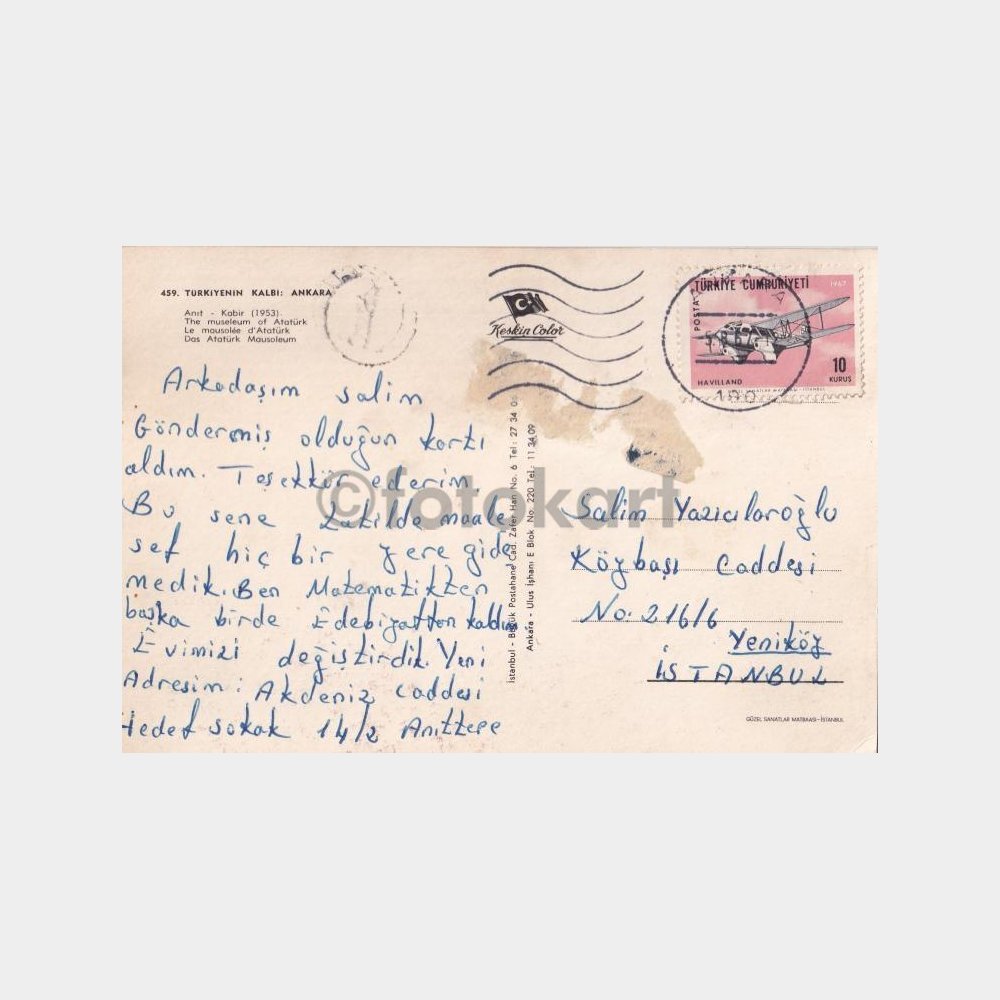 459. TÜRKİYENİN KALBİ: ANKARA
Anıt - Kabir (1953).
The museleum of Atatürk
Le mausolée d'Atatürk
Das Atatürk Mausoleum
Keskin Color
TÜRKİYE CUMHURİYETİ
1967
POSTA
HAVILLAND
10
KURUŞ
Arkadaşım salim
Göndermiş olduğun kartı
aldım. Teşekkür ederim
Bu sene tatilde maale
sef hiç bir yere gide
medik. Ben Matematikten
başka birde Edebiyattan kaldım
Evimizi değiştirdik. Yeni
Adresim: Akdeniz caddesi
Hedef sokak 14/2 Anıttepe
İstanbul - Büyük Postahane Cad. Zafer Han No. 6 Tel: 27 34 06
Ankara - Ulus İşhanı E Blok No. 220 Tel: 11 34 09
Salim Yazıcılaroğlu
Köybaşı Caddesi
No: 216/6
Yeniköy
İSTANBUL
GÜZEL SANATLAR MATBAASI-İSTANBUL
©fotokart